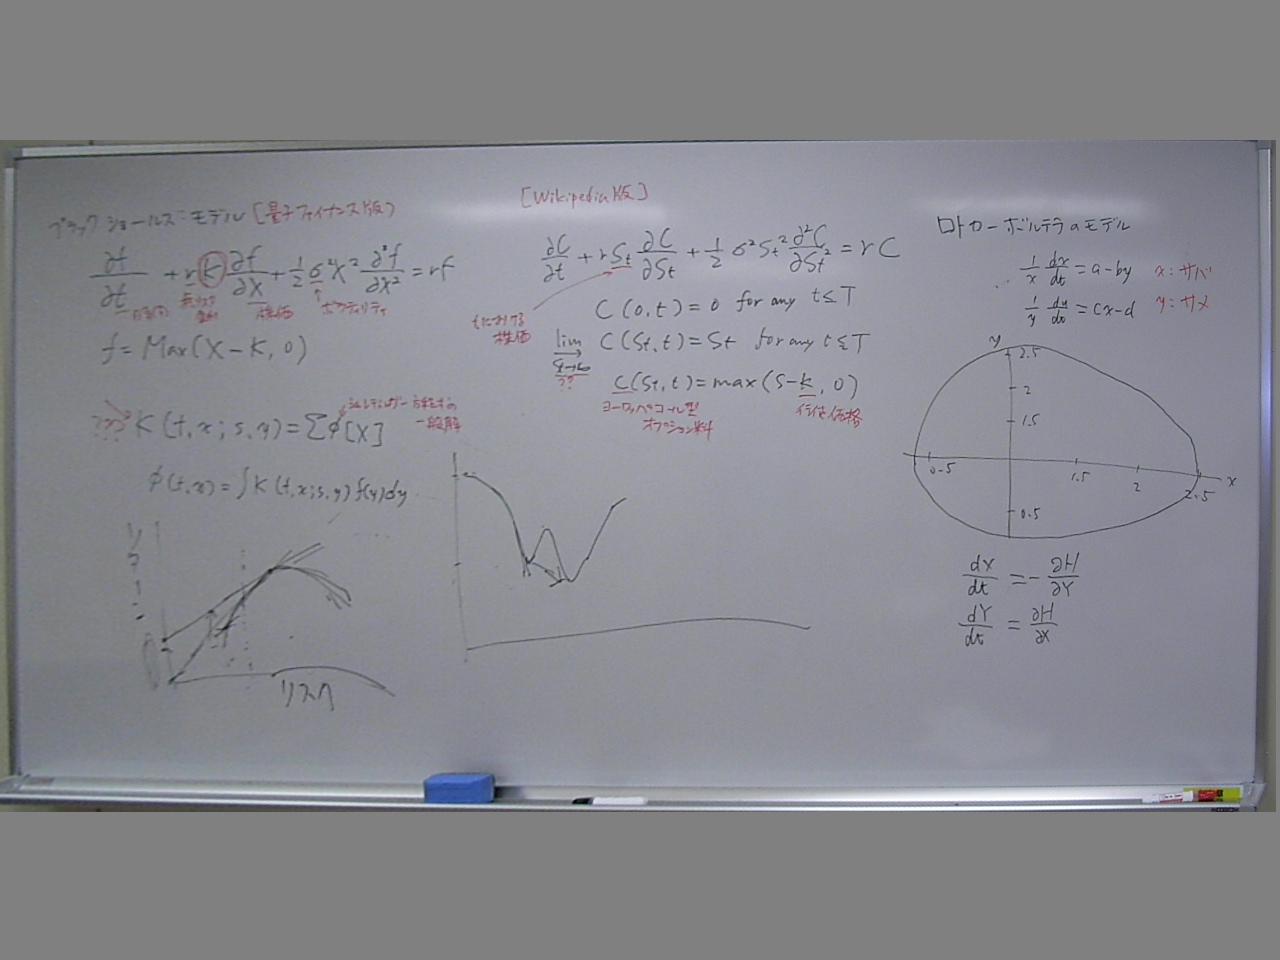 ブラックショールズ:モデル[量子ファイナンス版)
∂f/∂t + rK ∂f/∂X + 1/2 σ²X² ∂²f/∂X² = rf
時間
株価
ボラティリティ
f = Max(X-K, 0)
??? K(t,x;s,y) = Σφ[X]
シュレディンガー方程式の
一般解
φ(t,x) = ∫K(t,x;s,y)f(y)dy
リスク
[Wikipedia版]
∂C/∂t + rSt ∂C/∂St + 1/2 σ²St² ∂²C/∂St² = rC
tにおける
株価
C(0,t) = 0 for any t≤T
lim C(St,t) = St for any t≤T
S→∞
??
C(St,t) = max(S-K, 0)
ヨーロッパ・コール型
オプション料
行使価格
ロトカーボルテラのモデル
1/x dx/dt = a-by x:サバ
1/y dy/dt = cx-d y:サメ
y
2.5
2
1.5
0.5 1.5 2 2.5 x
0.5
dX/dt = -∂H/∂Y
dY/dt = ∂H/∂X